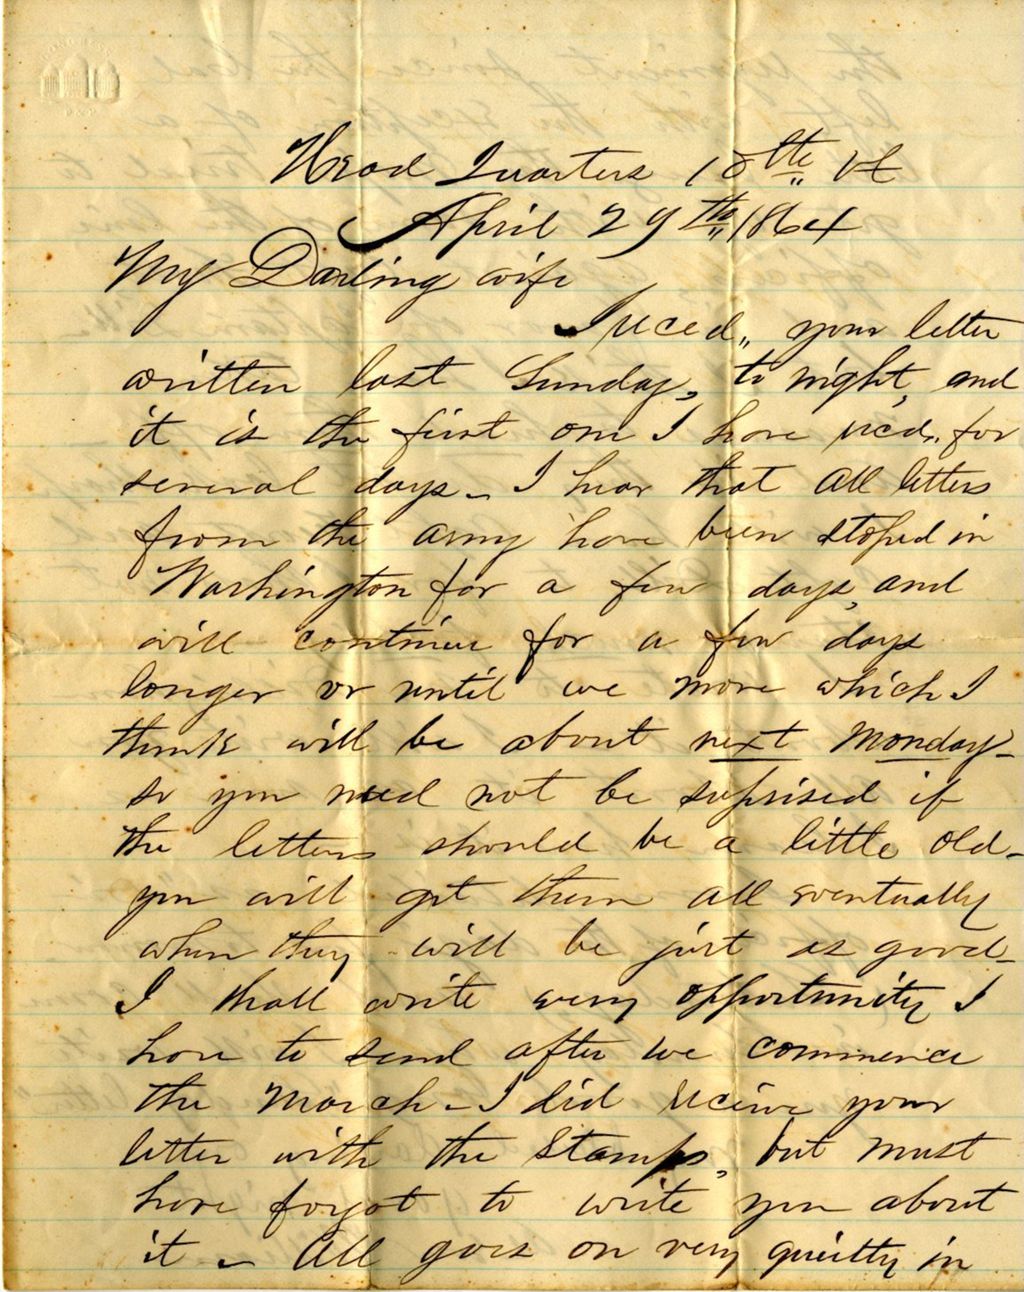 Head Quarters 10th Vt
April 29th 1864
My Darling wife
I recd,, your letter
written last Sunday, to night, and
it is the first one I have recd,, for
several days - I hear that all letters
from the army have been stoped in
Washington for a few days, and
will continue for a few days
longer or until we move which I
think will be about next Monday -
so you need not be suprised if
the letters should be a little old -
you will get them all eventually
when they will be just as good -
I shall write every opportunity I
have to send after we commence
the March - I did receive your
letter with the Stamps, but must
have forgot to write you about
it - All goes on very quietly in